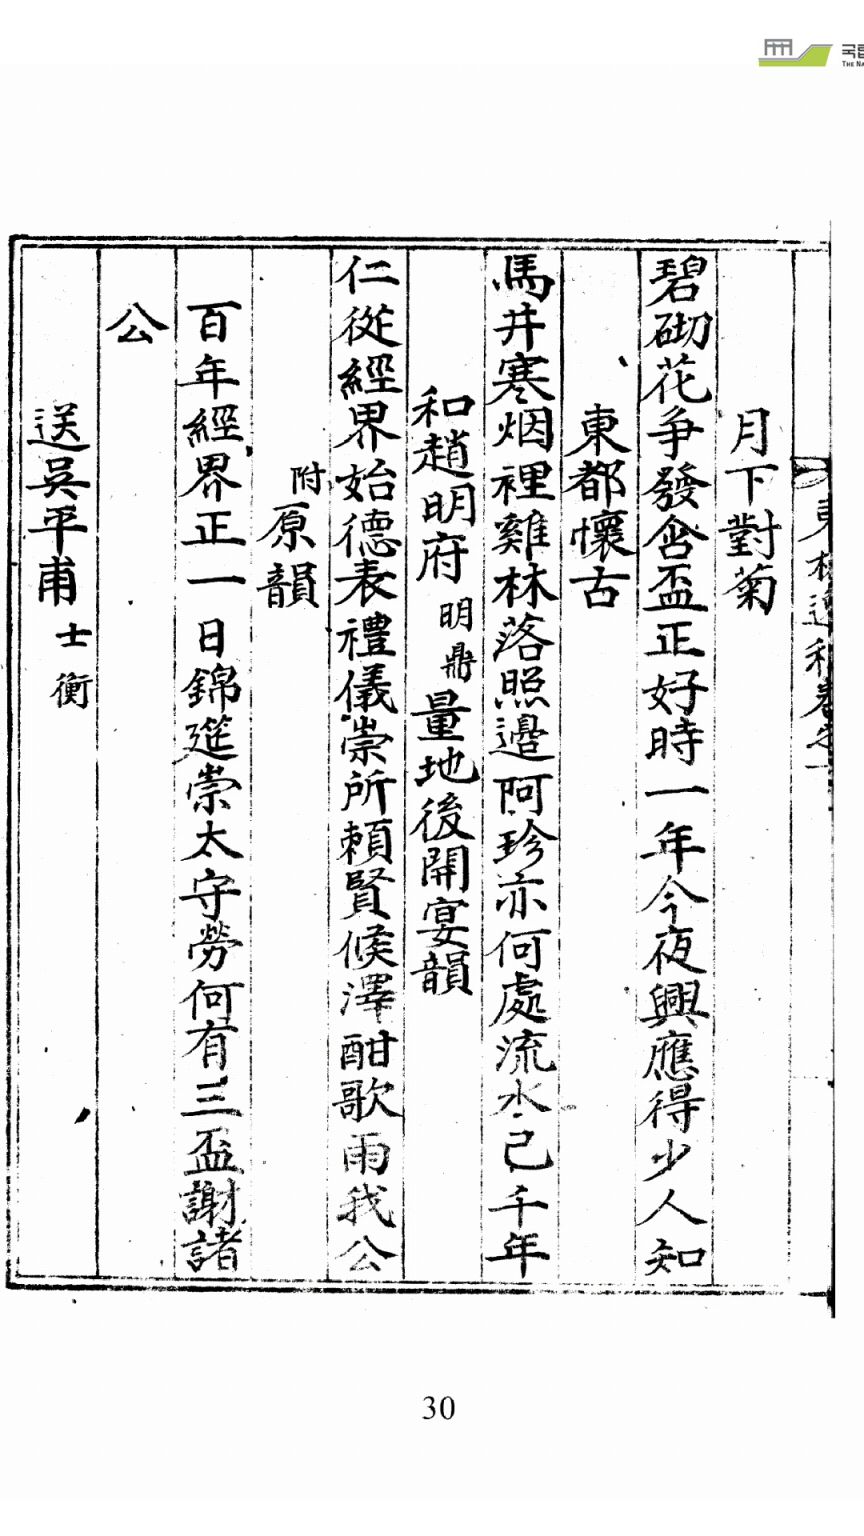 국립
THE NA
月下對菊
碧砌花争發含盃正好時一年今夜興應得少人知
東都懷古
馬井寒烟裡雞林落照邊阿珍亦何處流水已千年
和趙明府明鼎量地後開宴韻
仁從經界始德表禮儀崇所賴賢候澤酣歌雨我公
附原韻
百年經界正一日錦筵崇太守勞何有三盃謝諸
公
送吳平甫士衡
30